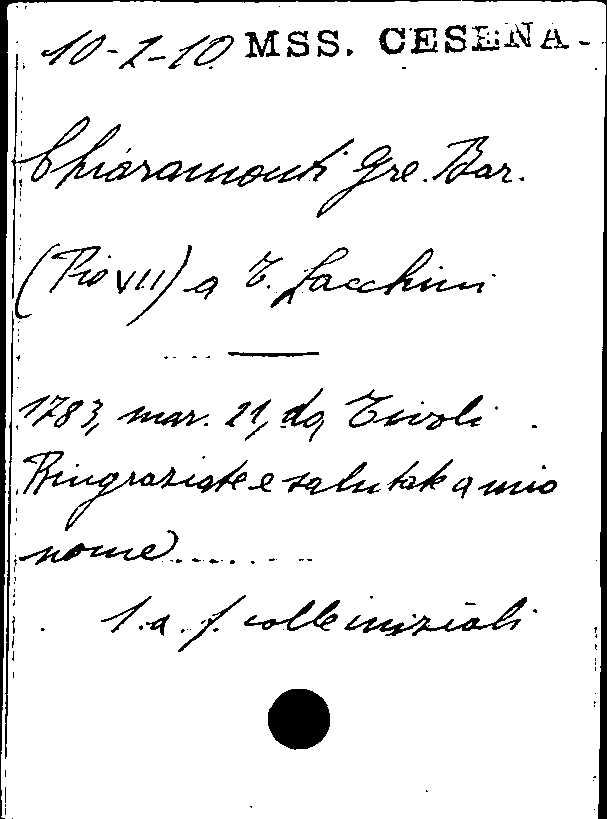 10-2-10 MSS. CESENA
Chiaramonti Gre. Bar.
(Pio VII) a T. Lacchini
1783, mar. 21, da Tivoli
Ringraziate e salutate a mio
nome........
1. a. f. colle iniziali